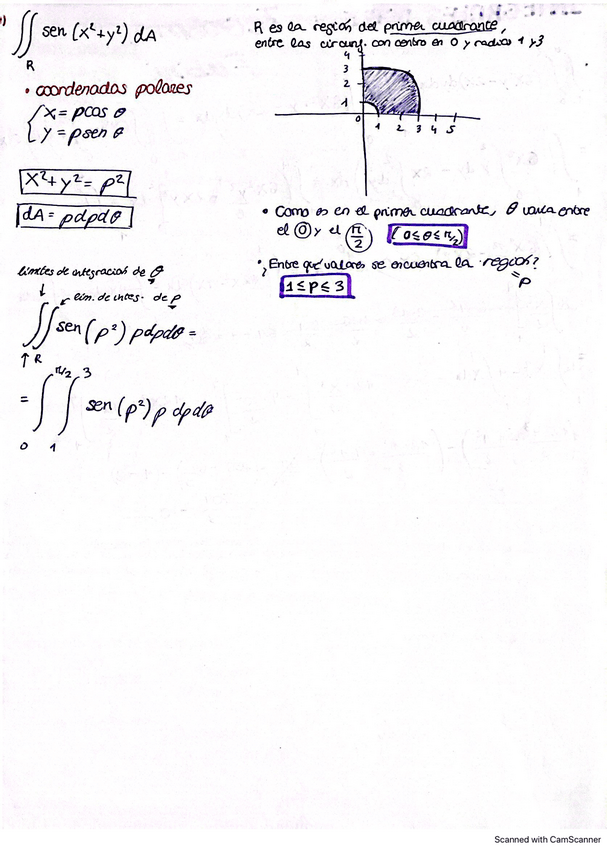 ∬ sen (x²+y²) dA
R
R es la región del primer cuadrante,
entre las circunf. con centro en 0 y radios 1 y 3
4
3
2
1
0 1 2 3 4 5
• coordenadas polares
{ x = ρcos θ
y = ρ sen θ
x²+y² = ρ²
dA = ρdρdθ
• Como es en el primer cuadrante, θ varía entre
el 0 y el π/2 (0 ≤ θ ≤ π/2)
• ¿Entre qué valores se encuentra la región?
= ρ
1 ≤ ρ ≤ 3
límites de integración de θ
↓ ↙ lim. de integ. de ρ
∬ sen (ρ²) ρdρdθ =
↑ R
= ∫₀^π/2 ∫₁³ sen (ρ²) ρ dρdθ
Scanned with CamScanner